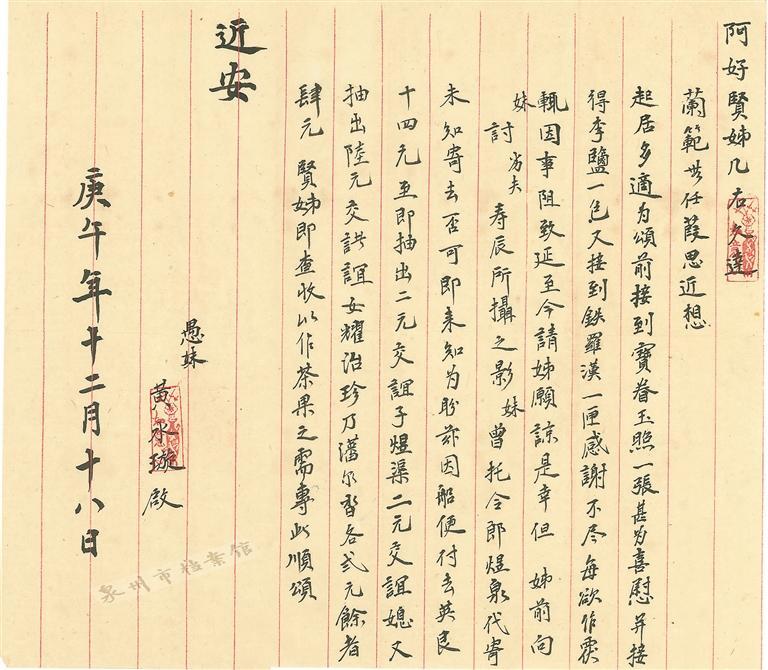 阿好賢姊几右久違
蘭範甚任葭思近想
起居多適為頌前接到寶眷玉照一張甚為喜慰并接
得李鹽一包又接到鉄羅漢一匣感謝不尽每欲作覆
輒因事阻致延至今請姊願諒是幸但 姊前向
妹討 劣夫 寿辰所攝之影 妹曾托令郎煜泉代寄
未知寄去否可即来知为盼茲因船便付去英艮
十四元至即抽出二元交誼子煜渠二元交誼媳又
抽出陸元交誼女耀治珍乃各弍元餘者
肆元 賢姊即查收以作茶果之需專此順頌
近安
愚妹
黄水璇啟
庚午年十二月十八日
泉州市档案馆